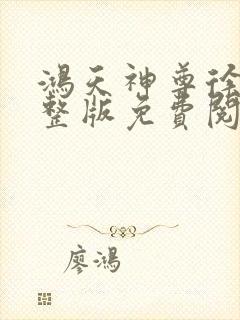 鴻天神尊徐
整版免費閱
廖鴻